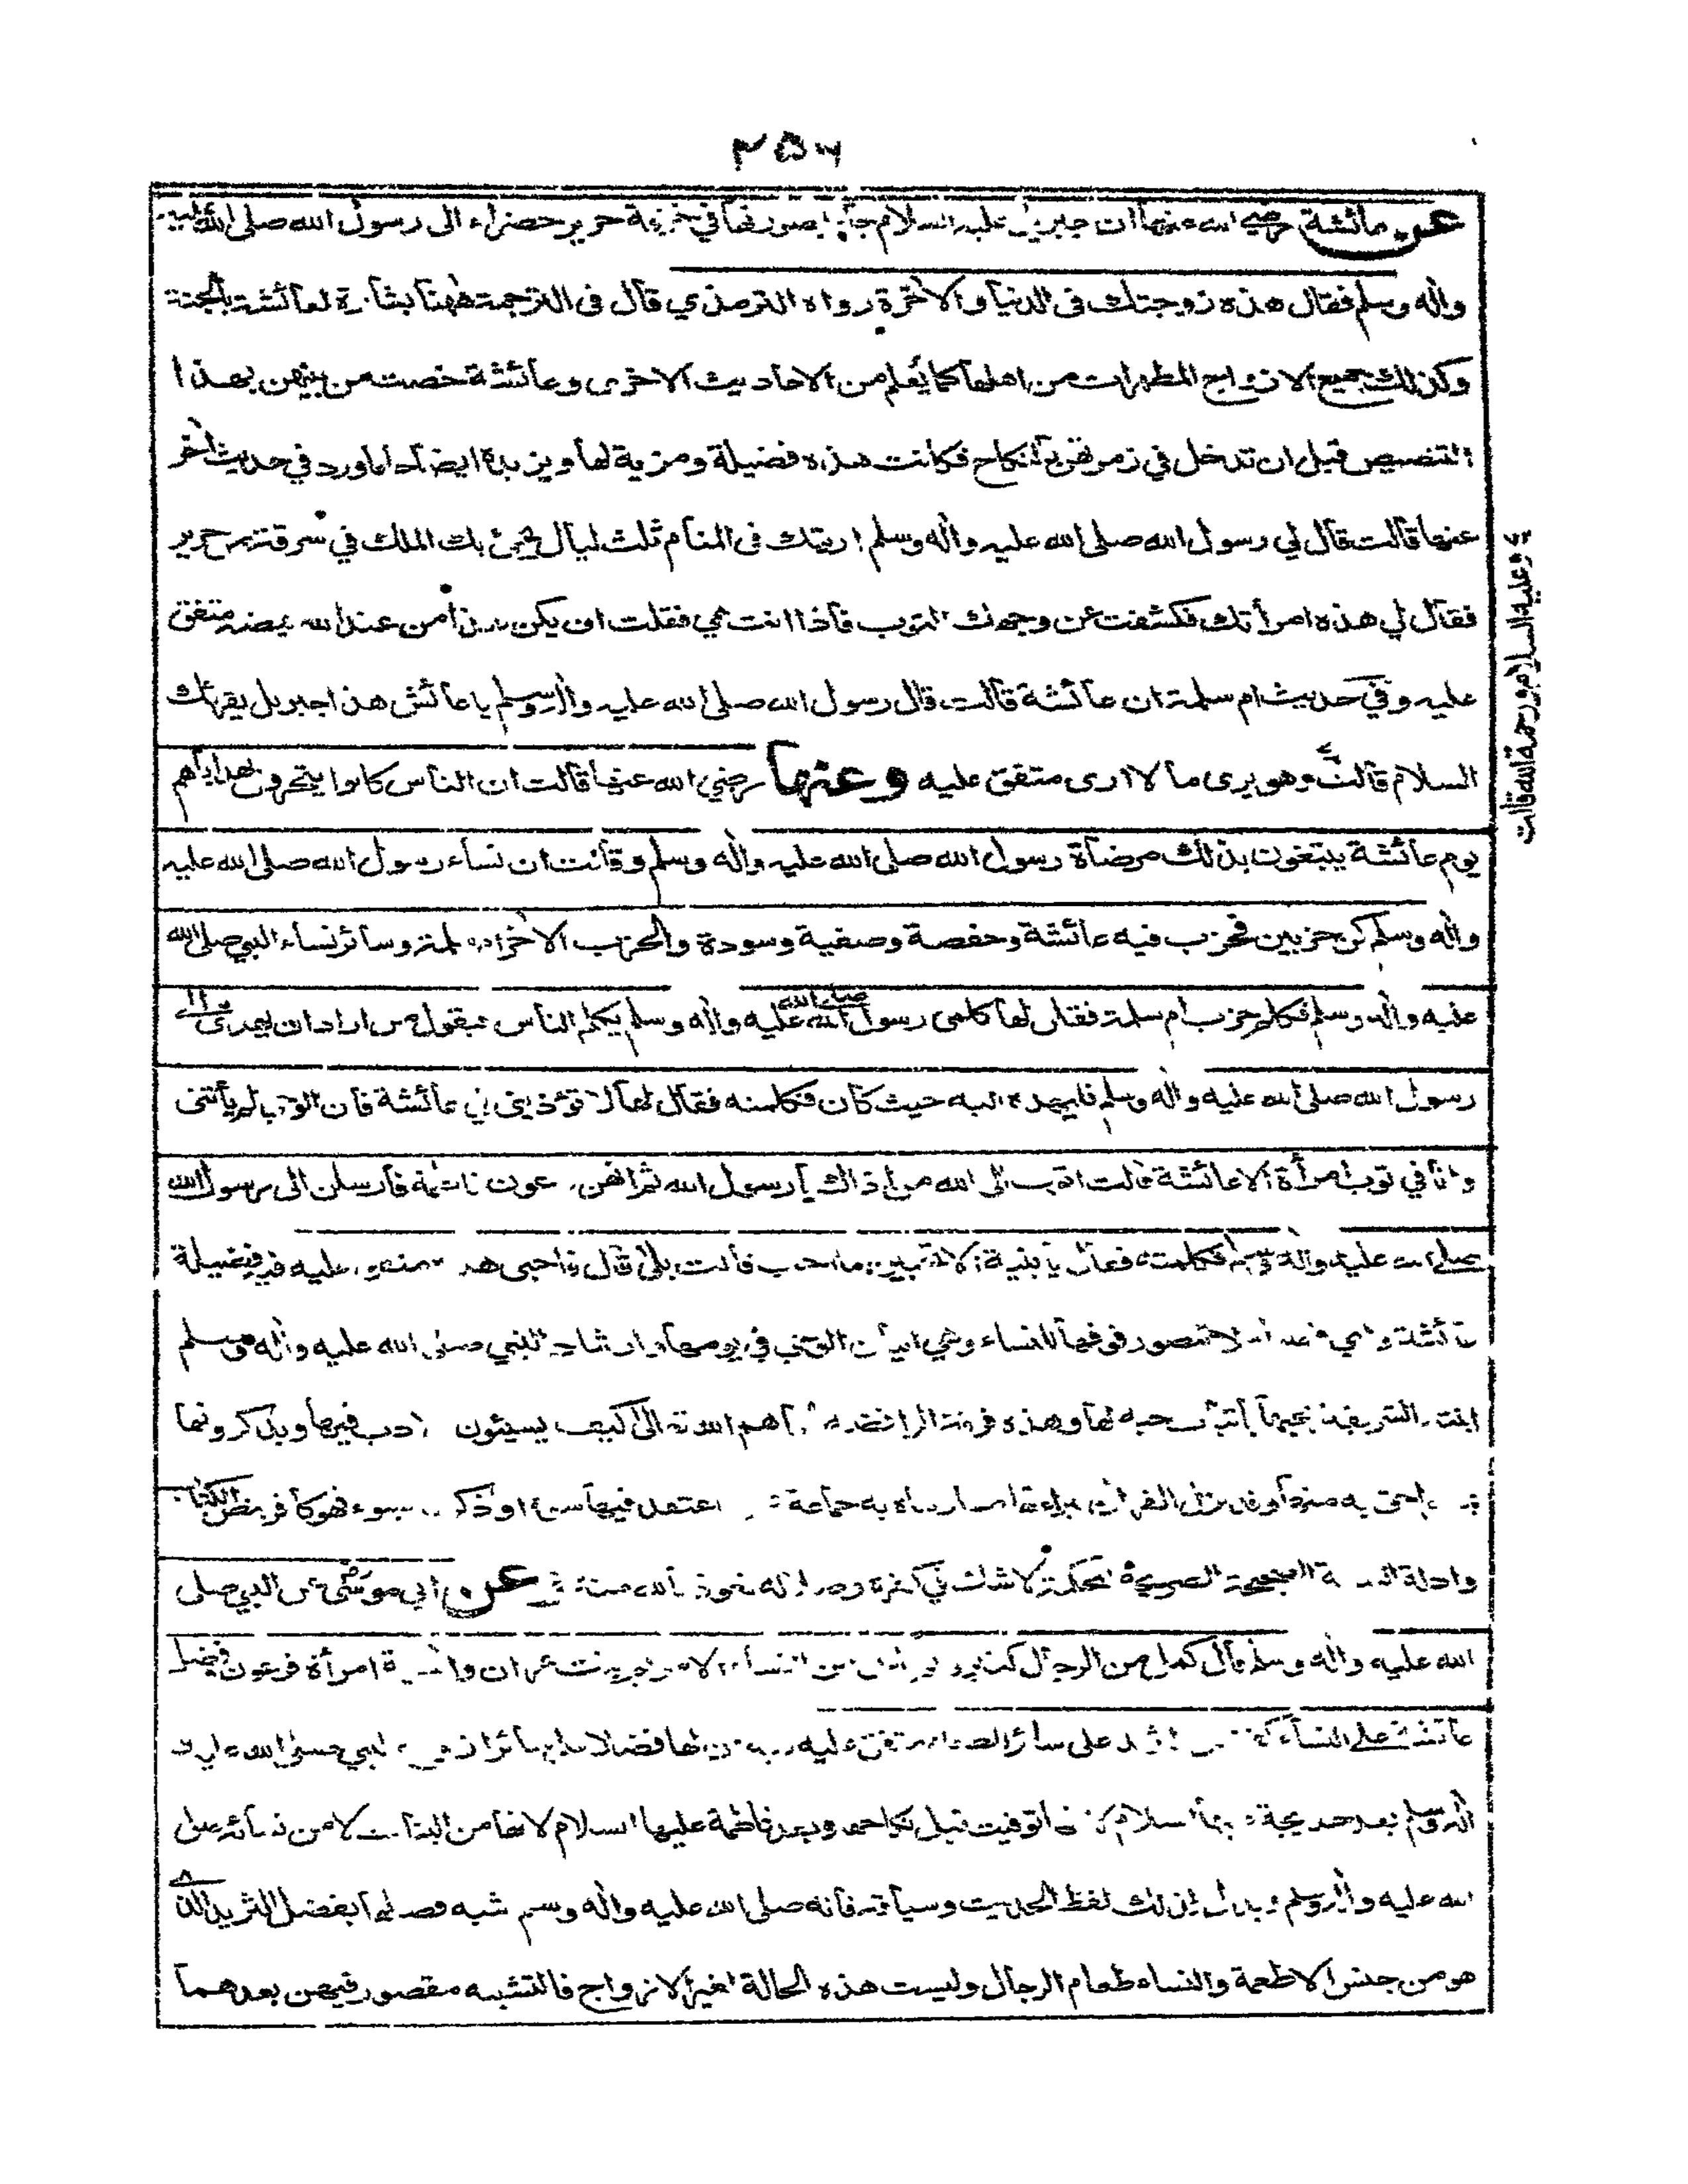 ٢٥٦
عن عائشة رضي الله عنها ان جبريل عليه السلام جاء بصورتها في خرقة حرير خضراء الى رسول الله صلى الله عليه
واله وسلم فقال هذه زوجتك في الدنيا والاخرة رواه الترمذي قال في الترجمة ههنا بشارة لعائشة بالجنة
وكذلك جميع الازواج المطهرات من اهلها كما يعلم من الاحاديث الاخرى وعائشة خصت من بينهن بهذا
التخصيص قبل ان تدخل في زمرتهن بالنكاح فكانت هذه فضيلة ومزية لها ويزيده ايضاحا ما ورد في حديث اخر
عنها قالت قال لي رسول الله صلى الله عليه واله وسلم اريتك في المنام ثلث ليال يجيئ بك الملك في سرقة من حرير
فقال لي هذه امرأتك فكشفت عن وجهك الثوب فاذا انت هي فقلت ان يكن هذا من عند الله يمضه متفق
عليه وفي حديث ام سلمة ان عائشة قالت قال رسول الله صلى الله عليه واله وسلم يا عائش هذا جبريل يقرئك
السلام قالت وهو يرى ما لا ارى متفق عليه وعنها رضي الله عنها قالت ان الناس كانوا يتحرون بهداياهم
يوم عائشة يبتغون بذلك مرضاة رسول الله صلى الله عليه واله وسلم وقالت ان نساء رسول الله صلى الله عليه
واله وسلم كن حزبين فحزب فيه عائشة وحفصة وصفية وسودة والحزب الاخر ام سلمة وسائر نساء النبي صلى الله
عليه واله وسلم فكلم حزب ام سلمة فقلن لها كلمي رسول الله صلى الله عليه واله وسلم يكلم الناس فيقول من اراد ان يهدي الى
رسول الله صلى الله عليه واله وسلم فليهده اليه حيث كان فكلمته فقال لها لا تؤذيني في عائشة فان الوحي لم يأتني
وانا في ثوب امرأة الا عائشة قالت اتوب الى الله من اذاك يا رسول الله ثم انهن دعون فاطمة فارسلن الى رسول الله
صلى الله عليه واله وسلم فكلمته فقال يا بنية الا تحبين ما احب قالت بلى قال فاحبي هذه متفق عليه فيه فضيلة
عائشة لا تتصور فوقها للنساء وهي اتيان الوحي في يومها وارشاد النبي صلى الله عليه واله وسلم
ابنته الشريفة بحبها باثبات حبه لها وهذه فرقة الرافضة كيف يسيئون الادب فيها ويذكرونها
بما اعتقد فيها او ذكر بسوء فهو كافر بنص الكتاب
وادلة السنة الصحيحة الصريحة المحكمة لا شك في كفره نعوذ بالله منه عن ابي موسى عن النبي صلى
الله عليه واله وسلم قال كمل من الرجال كثير ولم يكمل من النساء الا مريم بنت عمران واسية امرأة فرعون وفضل
عائشة على النساء كفضل الثريد على سائر الطعام متفق عليه لها فضلا على سائر ازواج النبي صلى الله عليه
واله وسلم بعد خديجة عليها السلام توفيت قبل نكاحه وبعد فاطمة عليها السلام لانها من البنات لا من نسائه صلى
الله عليه واله وسلم ويدل لذلك لفظ الحديث وسياقه فانه صلى الله عليه واله وسلم شبه فضلها بفضل الثريد الذي
هو من جنس الاطعمة والنساء طعام الرجال وليست هذه الحالة لغير الازواج فالتشبيه مقصور فيهن بعدهما
وعليه السلام ورحمة الله قالت